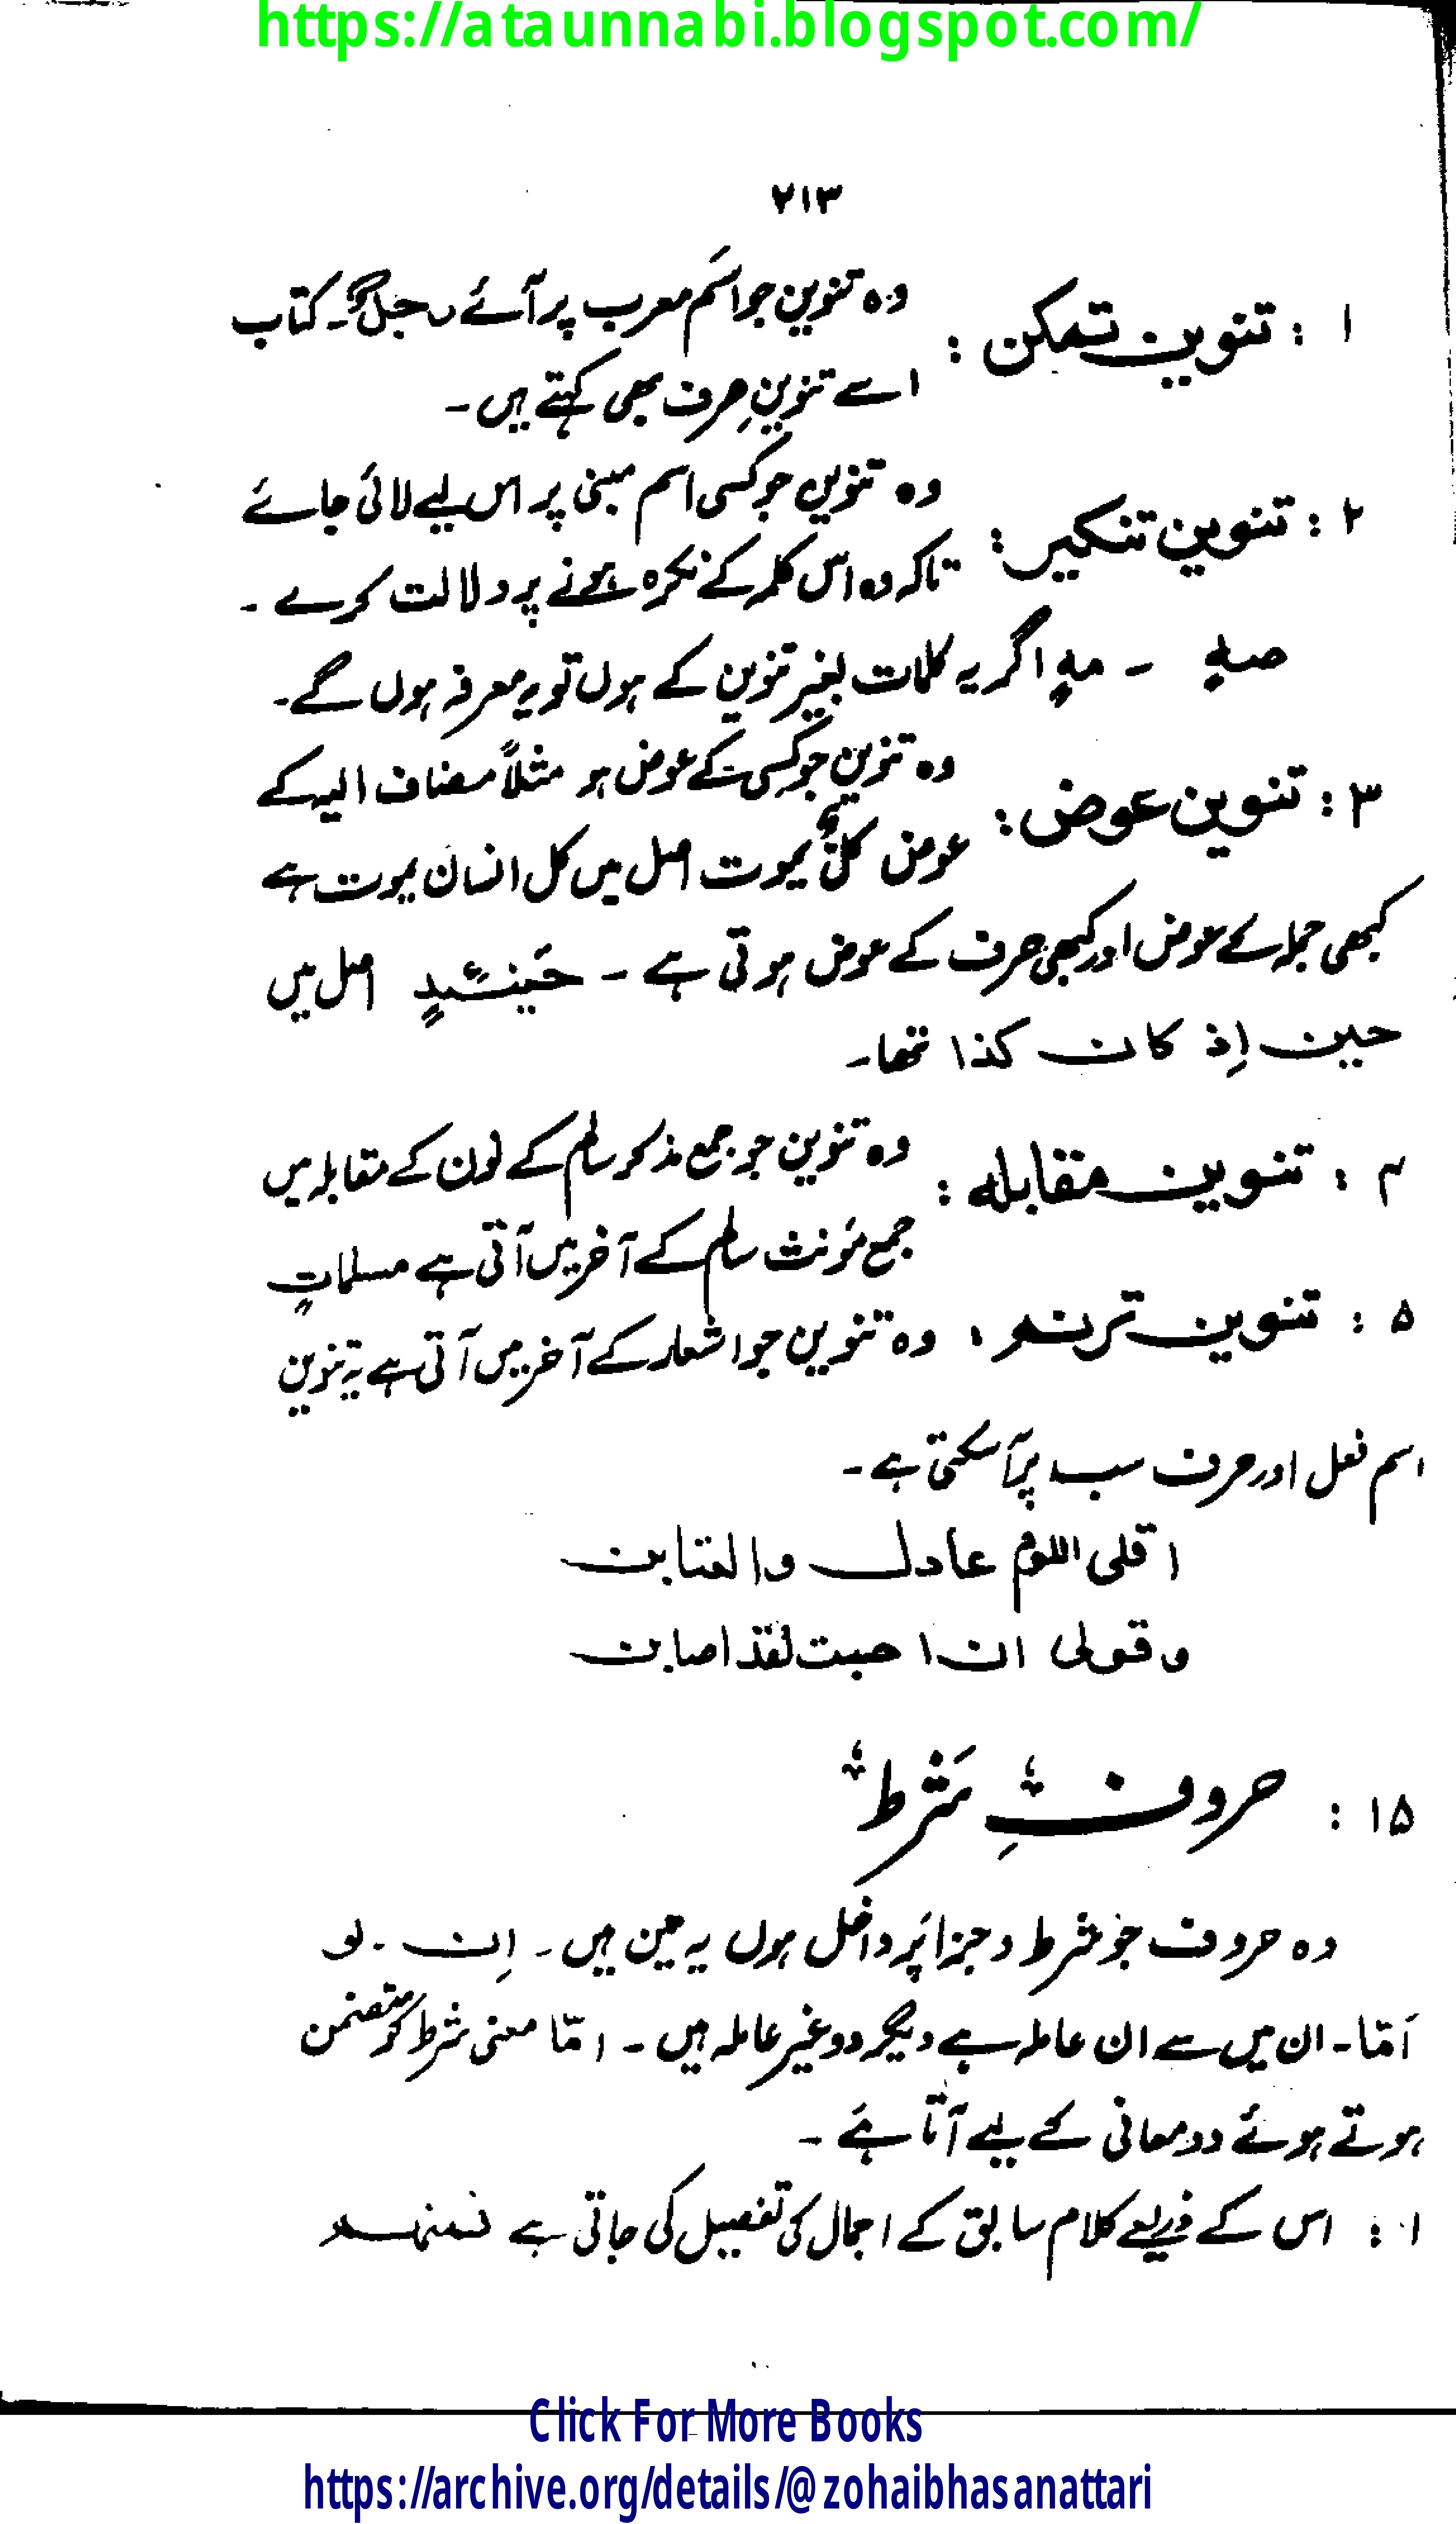 https://ataunnabi.blogspot.com/
۲۱۳
۱ : تنوین تمکن : وہ تنوین جو اسم معرب پر آئے رجلٌ۔ کتاب
اسے تنوینِ صرف بھی کہتے ہیں۔
۲ : تنوین تنکیر : وہ تنوین جو کسی اسم مبنی پر اس لیے لائی جائے
تاکہ وہ اس کلمہ کے نکرہ ہونے پر دلالت کرے ۔
صہٍ ۔ مہٍ اگر یہ کلمات بغیر تنوین کے ہوں تو یہ معرفہ ہوں گے۔
۳ : تنوین عوض : وہ تنوین جو کسی کے عوض ہو مثلاً مضاف الیہ کے
عوض کلٌّ یموت اصل میں کل انسان یموت ہے
کبھی جملہ کے عوض اور کبھی حرف کے عوض ہوتی ہے ۔ حینئیدٍ اصل میں
حین اِذ کان کذا تھا۔
۴ : تنوین مقابلہ : وہ تنوین جو جمع مذکر سالم کے نون کے مقابلہ میں
جمع مؤنث سالم کے آخر میں آتی ہے مسلماتٍ
۵ : تنوین ترنم : وہ تنوین جو اشعار کے آخر میں آتی ہے یہ تنوین
اسم فعل اور حرف سب پر آ سکتی ہے۔
اقلی اللوم عادل والعتابن
وقولی ان احبت لقد اصابن
۱۵ : حروفِ شرط
وہ حروف جو شرط و جزا پر داخل ہوں یہ تین ہیں۔ اِن ۔ لو
اَمّا۔ ان میں سے ان عاملہ ہے دیگر دو غیر عاملہ ہیں ۔ امّا معنی شرط کو متضمن
ہوتے ہوئے دو معانی کے لیے آتا ہے ۔
۱ : اس کے ذریعے کلام سابق کے اجمال کی تفصیل کی جاتی ہے فمنہم
Click For More Books
https://archive.org/details/@zohaibhasanattari